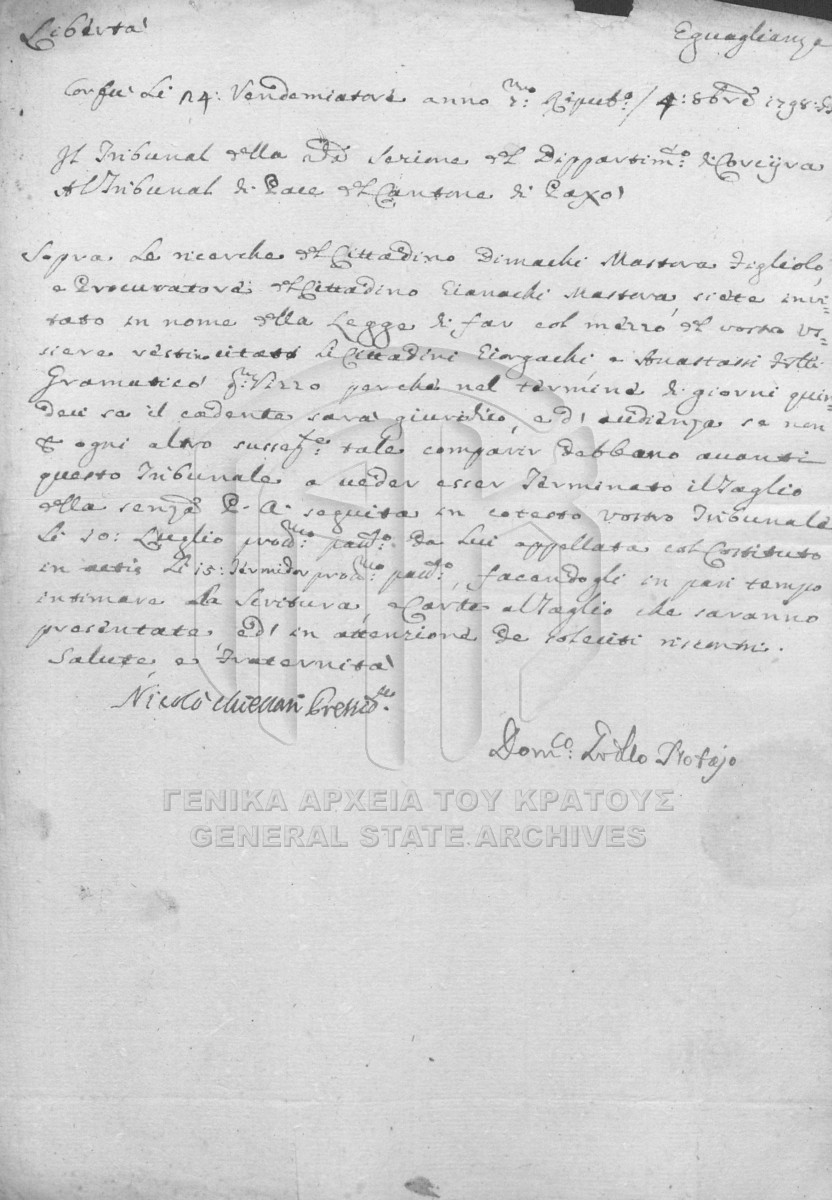 Libertà Eguaglianza
Corfù Li 14: Vendemiatore anno 7:mo Ripub:o / 4: 8bre 1798:
Il Tribunal della Sezione del Dippartim:to di Corcijra
Al Tribunal di Pace del Cantone di Paxò
Sopra Le ricerche del Cittadino Dimachi Mastora figliolo,
e Procuratore del Cittadino Gianachi Mastora, siete invi-
tato in nome della Legge di far col mezzo del vostro Us-
siere citati Li Cittadini Giorgachi, e Anastassi
Gramaticò q:m Vizzo perche nel termine di giorni quin-
deci se il cadente sarà giuridico, e d'audienza se non
ogni altro susseg:te tale comparir debbano avanti
questo Tribunale a veder esser Terminato il Taglio
della senza P. A. seguita in cotesto vostro Tribunale
Li 10: Luglio pros:mo pass:to da Lui appellata col Costituto
in actis Li 15: Termidor pros:mo pass:to, facendogli in pari tempo
intimare la Scritura, e Carte al Taglio che saranno
presentate ed in attenzione de soleciti riscontri.
Salute, e Fraternità
Nicolò Presid:te
Dom:co Protojo
ΓΕΝΙΚΑ ΑΡΧΕΙΑ ΤΟΥ ΚΡΑΤΟΥΣ
GENERAL STATE ARCHIVES